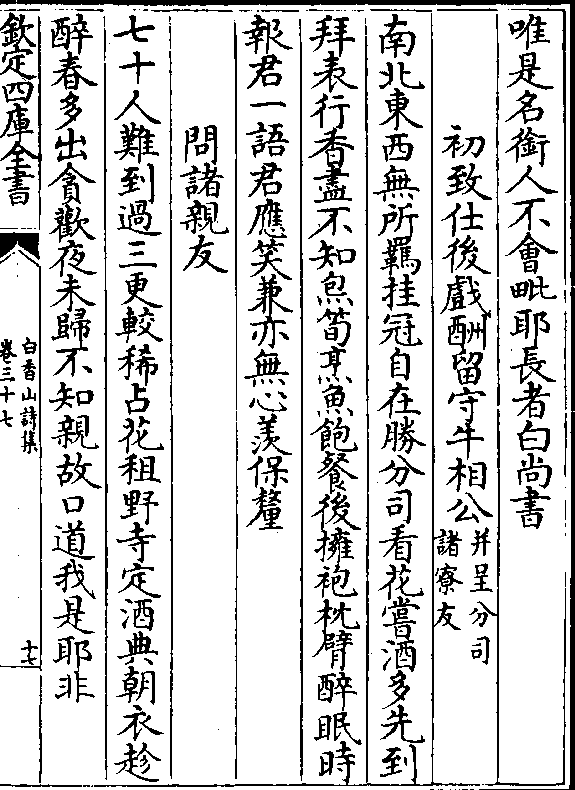 唯是名銜人不會毗耶長者白尚書
初致仕後戲酬留守牛相公
并呈分司
諸寮友
南北東西無所羈挂冠自在勝分司看花嘗酒多先到
拜表行香盡不知炰筍烹魚飽餐後擁袍枕臂醉眠時
報君一語君應笑兼亦無心羨保釐
問諸親友
七十人難到過三更較稀占花租野寺定酒典朝衣趁
醉春多出貪歡夜未歸不知親故口道我是耶非
欽定四庫全書
白香山詩集
卷三十七
十七